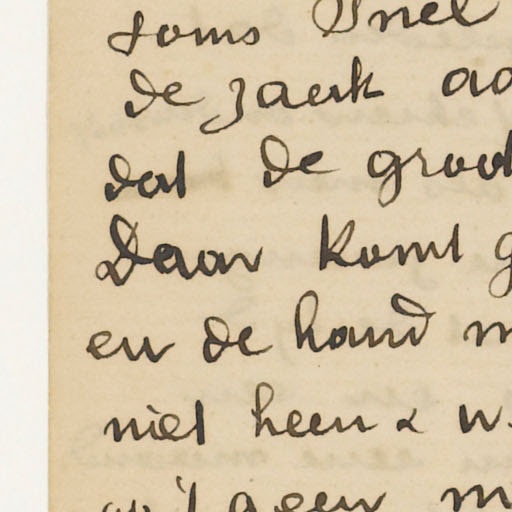 soms snel
de zaak
dat de groot
Daar komt g
en de hand m
niet heen & w
geen m